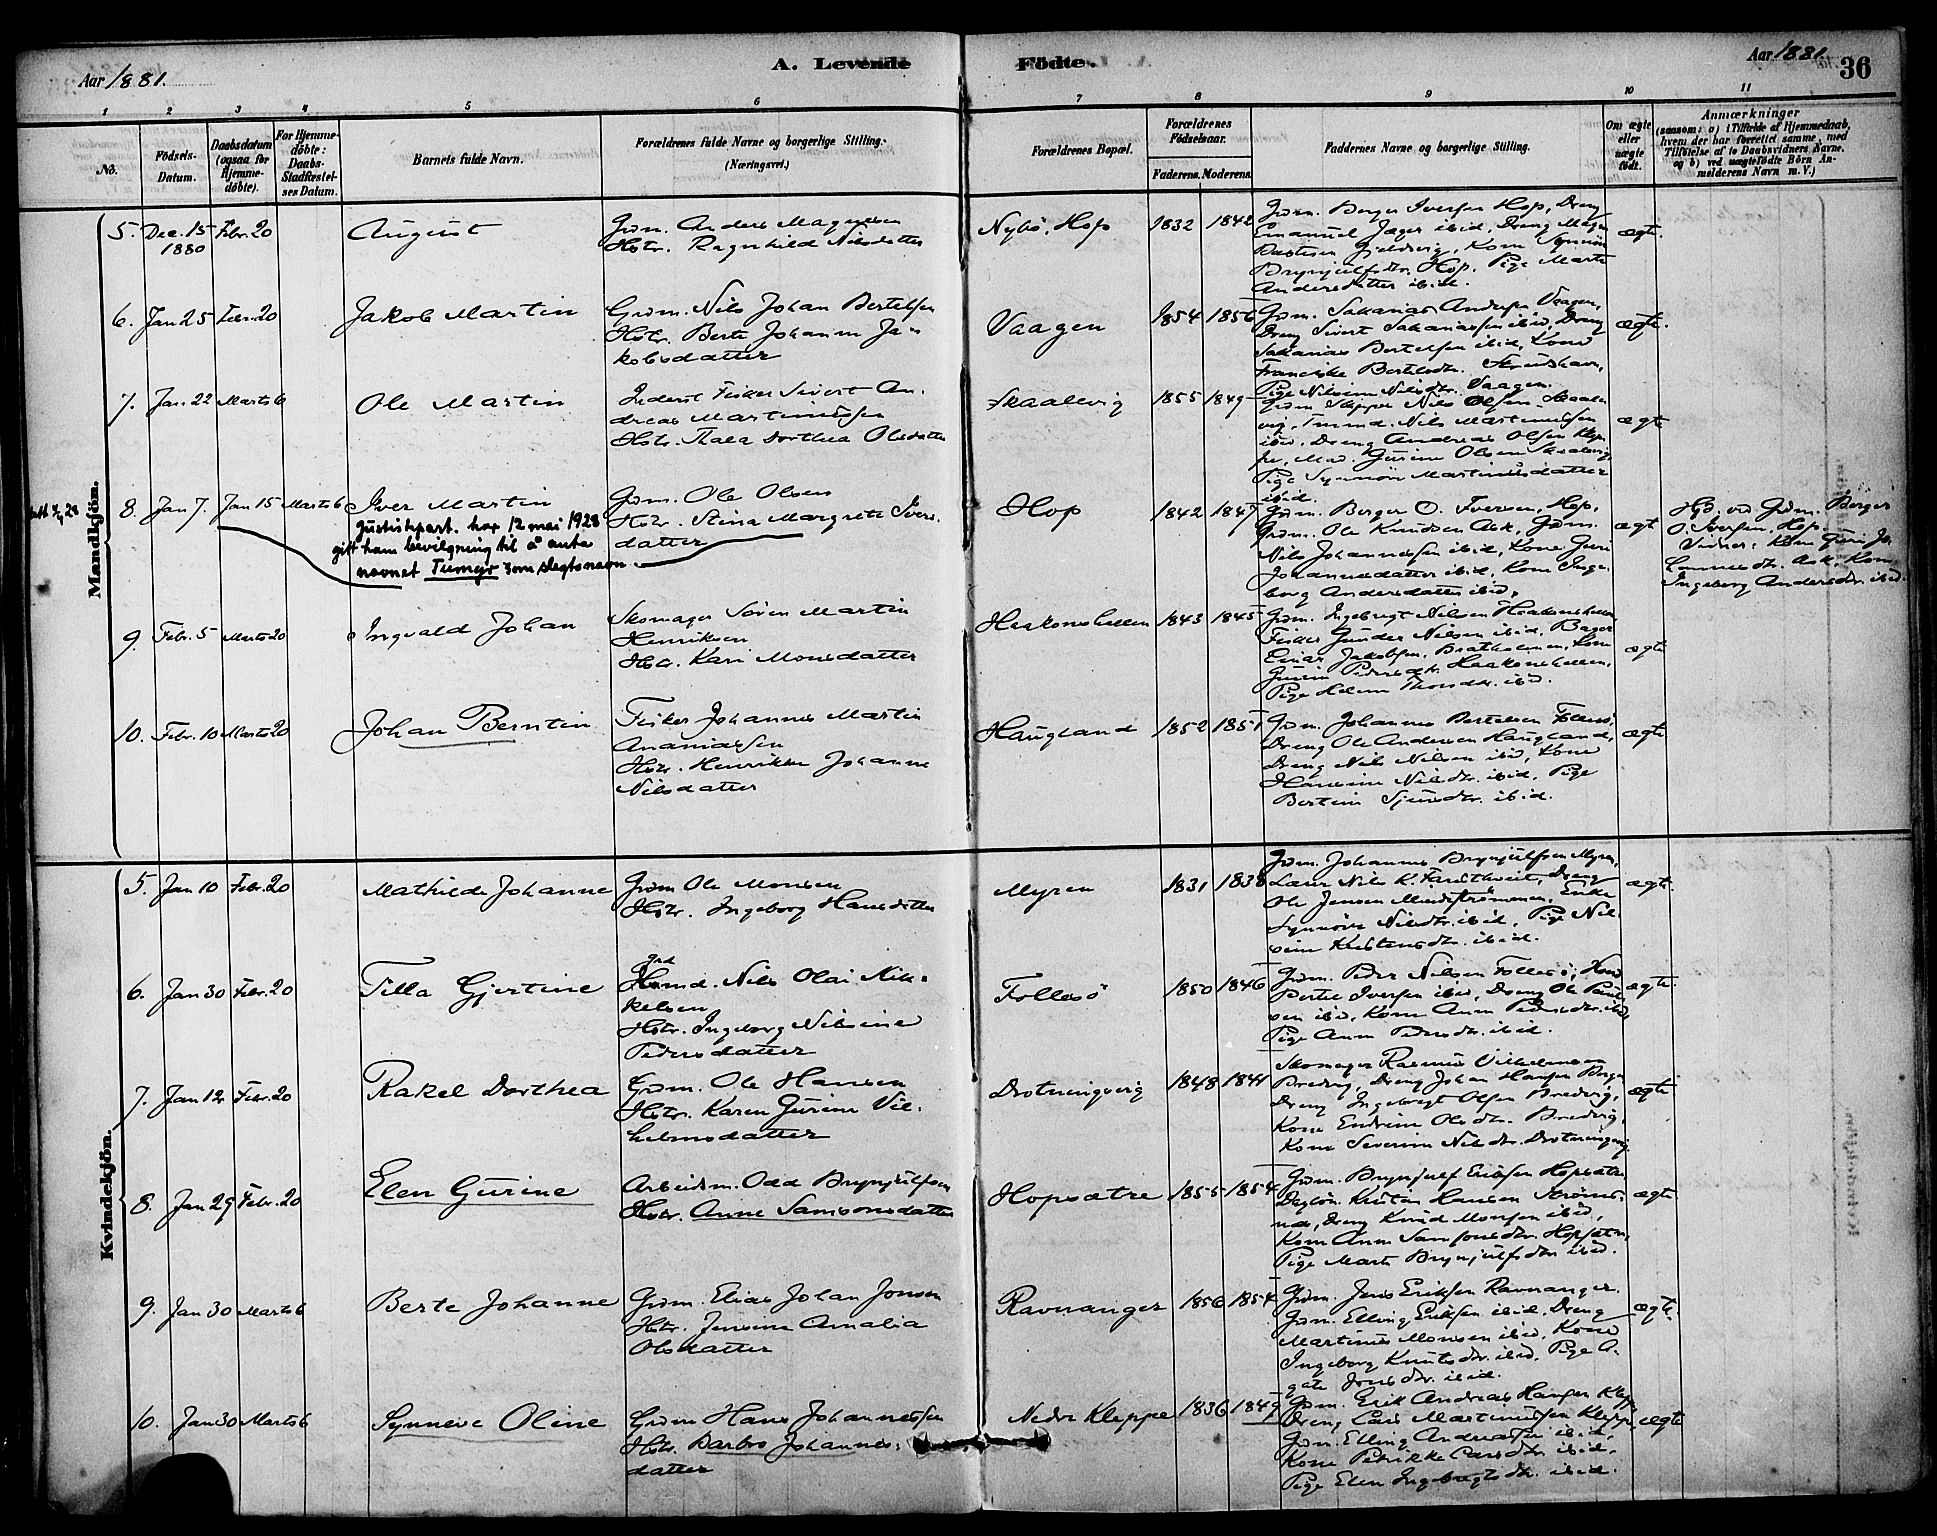 Aar 1881.
A. Levende Fødte.
Aar 1881.
36
1 2 3 4 5 6 7 8 9 10 11
No.
Fødsels-Datum.
Daabsdatum (ogsaa for Hjemmedøbte).
For Hjemmedøbte: Daabs-Stadfæstelses Datum.
Barnets fulde Navn.
Forældrenes fulde Navne og borgerlige Stilling. (Næringsvei.)
Forældrenes Bopæl.
Forældrenes Fødselsaar.
Faderens. Moderens.
Faddernes Navne og borgerlige Stilling.
Om ægte eller uægte født.
Anmærkninger
(saasom: a) i Tilfælde af Hjemmedaab, hvem der har forrettet samme, med Tilføielse af to Daabsvidners Navne, og b) ved uægtefødte Børn Anmelderens Navn m. V.)
Mandkjön.
5. Dec. 15 1880 Febr. 20 August
Grdm. Anders Magnesen
Hstr. Ragnhild Nilsdatter
Nybö, Hop 1832 1842
Grdm. Berger Iversen Hop, Dreng
Emanuel Jæger ibid, Dreng
Brynjulfsdtr. Hop. Pige Marte
Andersdatter ibid.
ægte.
6. Jan 25 Febr. 20 Jakob Martin
Grdm. Nils Johan Bertelsen
Hstr. Berte Johanne Ja-
kobsdatter
Vaagen 1854 1856
Grdm. Sakarias Andersen Vaagen,
Dreng Sivert Sakariassen ibid, Dreng
Sakarias Bertelsen ibid, Kone
Franciske Bertelsdtr.
Pige Nilsine Nilsdtr. Vaagen.
ægte.
7. Jan. 22 Marts 6 Ole Martin
Inderst Fisker Sivert An-
dreas Martinussen
Hstr. Thea Dorthea Olsdatter
Skaalevig 1855 1849
Grdm. Skipper Nils Olsen Skaale-
vig, Nils Martinussen
ibid. Dreng Andreas Olsen Klep-
pe, Mad. Gurine Olsen Skaalevig,
Pige Synnöv Martinusdatter
ibid.
ægte
8. Jan 7. Jan 15 Marts 6 Iver Martin
Justisdepart. har 12 mai 1928
gitt ham bevilgning til å anta
navnet Tumyr som slegtsnavn.
Grdm. Ole Olsen
Hstr. Stina Margrete Ivers-
datter
Hop 1842 1847
Grdm. Berger O. Iversen, Hop,
Grdm. Ole Knudsen Ask, Grdm.
Nils Johannessen ibid, Kone Guri
Johannesdatter ibid, Kone Inge-
borg Andersdatter ibid,
ægte
Hjd. ved Grdm. Berger
O Iversen, Hop.
Vidner, Kone Guri Jo-
hannesdtr. Ask, Kone
Ingeborg Andersdtr. ibid.
9. Febr. 5 Marts 20 Ingvald Johan
Skomager Sören Martin
Henriksen
Hstr. Kari Monsdatter
Haakonshellen 1843 1845
Grdm. Ingebrigt Nilsen Haakonshellen
Fisker Gunder Nilsen ibid, Bager
Einar Jakobsen, Bratholmen, Kone
Gurin Pedersdtr. Haakonshellen,
Pige Helene Thorsdtr. ibid.
ægte
10. Febr. 10 Marts 20 Johan Berntin
Fisker Johannes Martin
Ananiassen
Hstr. Henrikke Johanne
Nilsdatter
Haugland 1852 1851
Grdm. Johannes Bertelsen Follesö,
Dreng Ole Andersen Haugland,
Dreng Nils Nilsen ibid, Kone
Hansine Nilsdtr. ibid, Pige
Bertine Sjursdtr. ibid.
ægte
Kvindekjön.
5. Jan 10 Febr. 20 Mathilde Johanne
Grdm Ole Monsen
Hstr. Ingeborg Hansdatter
Myren 1831 1838
Grdm. Johannes Brynjulfsen Myren,
Lærer Nils K. Dreng
Ole Jensen Enke
Synnöve Nilsdtr. ibid, Pige Nil-
sine Kristensdtr. ibid.
ægte.
6. Jan 30 Febr. 20 Tilla Gjertine
Nils Olai Mik-
kelsen
Hstr. Ingeborg Nilsine
Pedersdatter
Follesö 1850 1846
Grdm. Peder Nilsen Follesö,
Bertel Iversen ibid, Dreng Ole Paul-
sen ibid, Kone Anne Pedersdtr. ibid,
Pige Anne Pedersdtr. ibid.
ægte.
7. Jan 12 Febr. 20 Rakel Dorthea
Grdm. Ole Hansen
Hstr. Karen Gurine Vil-
helmsdatter
Drotningvig 1848 1841
Skomager Rasmus Vilhelmsen
Bredvig, Dreng Johan Hansen Bergen
Dreng Ingebregt Olsen Bredvig,
Kone Endrine Olsdtr. Bredvig,
Kone Severine Nilsdtr. Drotningvig
ægte
8. Jan 29 Febr. 20 Elen Gurine
Arbeidsm. Odd Brynjulfsen
Hstr. Anne Samsonsdatter
Hopsætre 1855 1854
Grdm. Brynjulf Eriksen Hopsætre
Knuten Hansen Ströms-
næs, Dreng Knud Monsen ibid,
Kone Anne Samsonsdtr. Hopsætre,
Pige Marte Brynjulfsdtr. ibid.
ægte
9. Jan 30 Marts 6 Berte Johanne
Grdm. Elias Johan Jonsen
Hstr. Jensine Amalia
Olsdatter
Ravnanger 1856 1854
Grdm. Jens Eriksen Ravnanger.
Grdm. Elling Eriksen ibid, Dreng
Martinus Monsen ibid, Kone
Ingeborg Knutsdtr. ibid, Pige A-
gate Jonsdtr. ibid.
ægte.
10. Jan 30 Marts 6 Synneve Oline
Grdm Hans Johannessen
Hstr. Barbro Johannes-
datter
Nedre Kleppe 1836 1849
Grdm. Erik Andreas Hansen Kleppe
Dreng Lars Martinussen Kleppe,
Grdm. Elling Andreassen ibid,
Kone Petrikke Larsdtr. ibid,
Pige Elen Ingebregtsdtr. ibid.
ægte